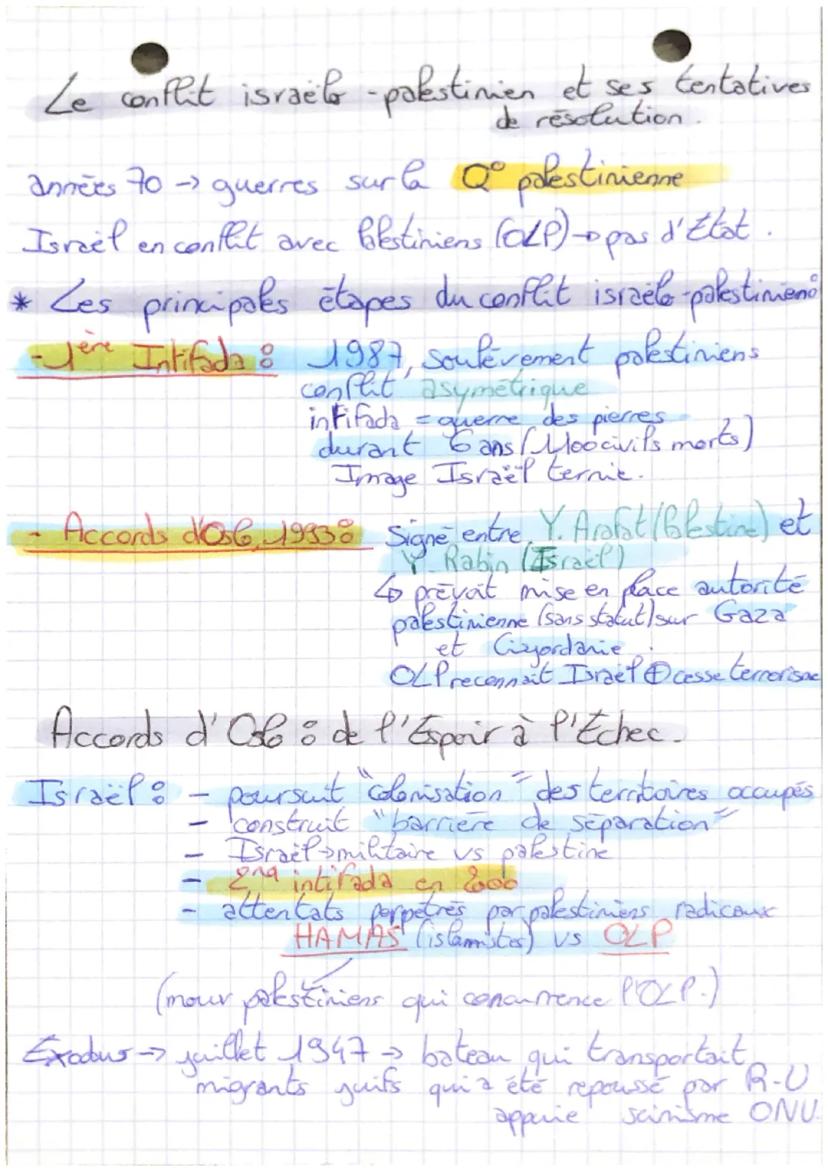 Le conflit israëlo-palestinien et ses tentatives
de résolution.
années 70 → guerres sur la Q° palestinienne
Israël en conflit avec Palestiniens (OLP) → pas d'Etat.
* Les principales étapes du conflit israëlo-palestinien :
- 1ère Intifada : 1987, soulèvement palestiniens
conflit asymétrique
intifada = guerre des pierres
durant 6 ans (1400 civils morts)
Image Israël ternie.
- Accords d'Oslo, 1993 : Signé entre Y. Arafat (Palestine) et
Y. Rabin (Israël)
↳ prévoit mise en place autorité
palestinienne (sans statut) sur Gaza
et Cisjordanie.
OLP reconnait Israël ⊕ cesse terrorisme
Accords d'Oslo : de l'Espoir à l'Echec.
Israël : - poursuit "colonisation" des territoires occupés
- construit "barrière de séparation"
- Israël → militaire vs palestine
- 2nd intifada en 2000
- attentats perpétrés par palestiniens radicaux
HAMAS (islamistes) vs OLP
(mouv palestiniens qui concurrence l'OLP.)
Exodus → juillet 1947 → bateau qui transportait
migrants juifs qui a été repoussé par R-U
appuie sionisme ONU.